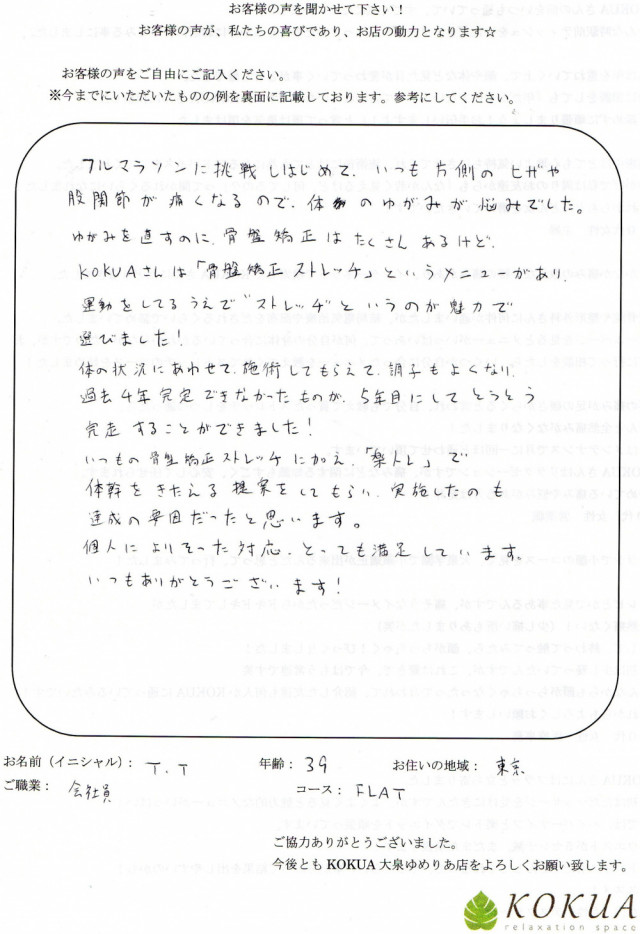 お客様の声を聞かせて下さい！
お客様の声が、私たちの喜びであり、お店の動力となります☆
お客様の声をご自由にご記入ください。
※今までにいただいたものの例を裏面に記載しております。参考にしてください。
フルマラソンに挑戦しはじめて、いつも片側のヒザや
股関節が痛くなるので、体のゆがみが悩みでした。
ゆがみを直すのに、骨盤矯正はたくさんあるけど、
KOKUAさんは「骨盤矯正ストレッチ」というメニューがあり、
運動をしてるうえで"ストレッチ"というのが魅力で
選びました！
体の状況にあわせて、施術してもらえて、調子もよくなり、
過去4年完走できなかったものが、5年目にしてとうとう
完走することができました！
いつもの骨盤矯正ストレッチに加え、「楽トレ」で、
体幹をきたえる提案をしてもらい、実施したのも
達成の要因だったと思います。
個人によりそった対応、とっても満足しています。
いつもありがとうございます！
お名前（イニシャル）： T.T 年齢： 39 お住いの地域： 東京
ご職業： 会社員 コース： FLAT
ご協力ありがとうございました。
今後とも KOKUA 大泉ゆめりあ店をよろしくお願い致します。
KOKUA
relaxation space